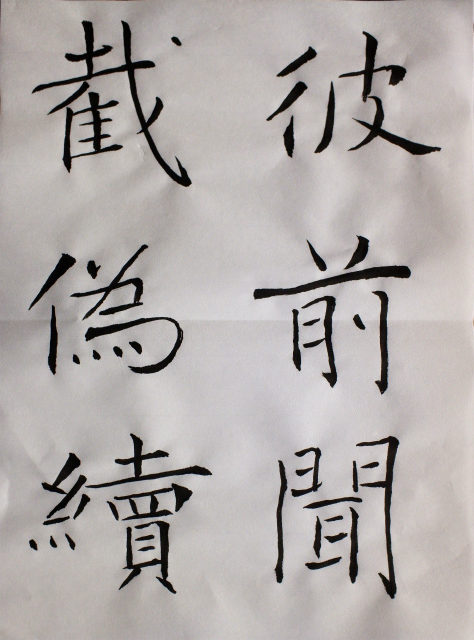 彼前聞
截偽續